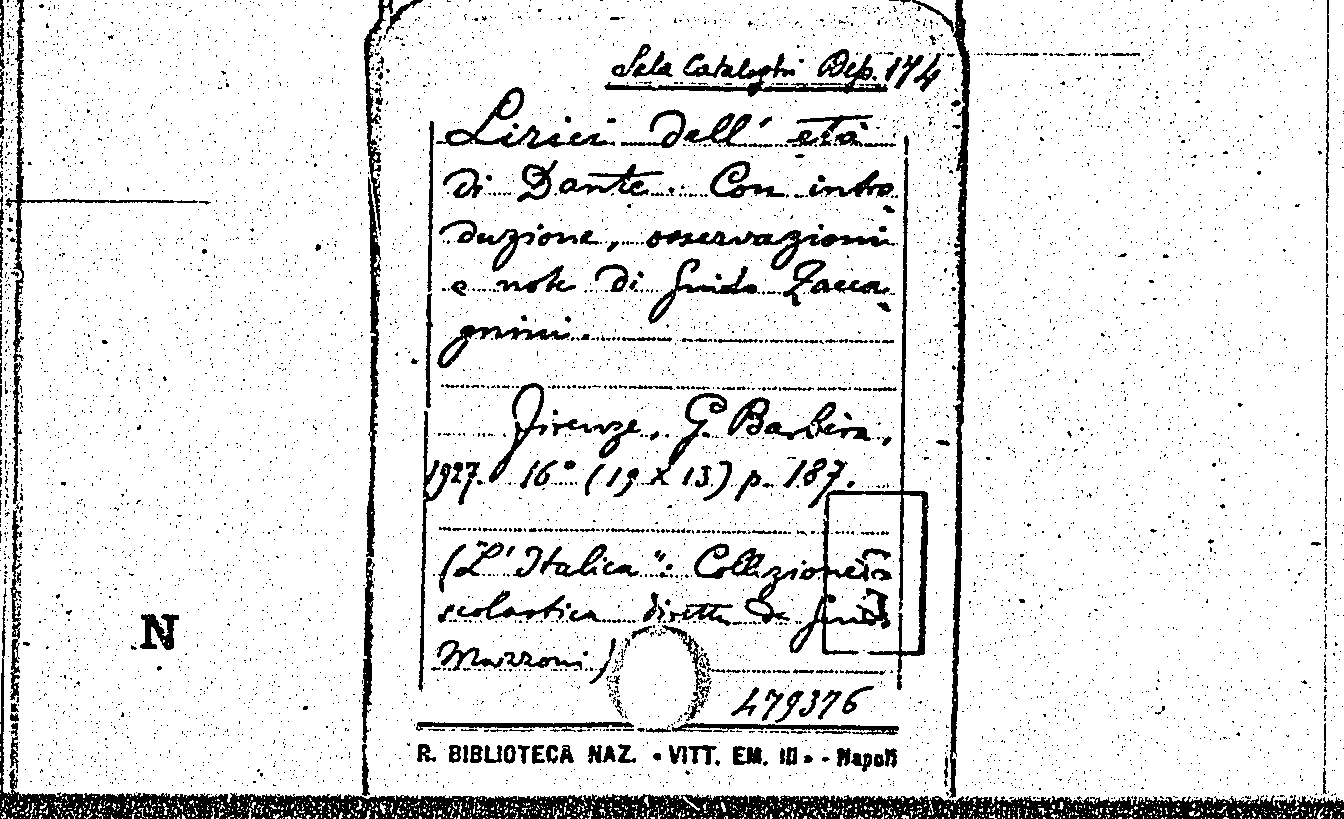 Sala Cataloghi Dep. 174
Lirici dell' età
di Dante. Con intro
duzione, osservazioni
e note di Guido Zacca-
gnini.
Firenze, G. Barbèra,
1927. 16° (19 x 13) p. 187.
("L'Italica": Collezione
scolastica diretta da Guido
Mazzoni)
479376
R. BIBLIOTECA NAZ. «VITT. EM. III» - Napoli
N